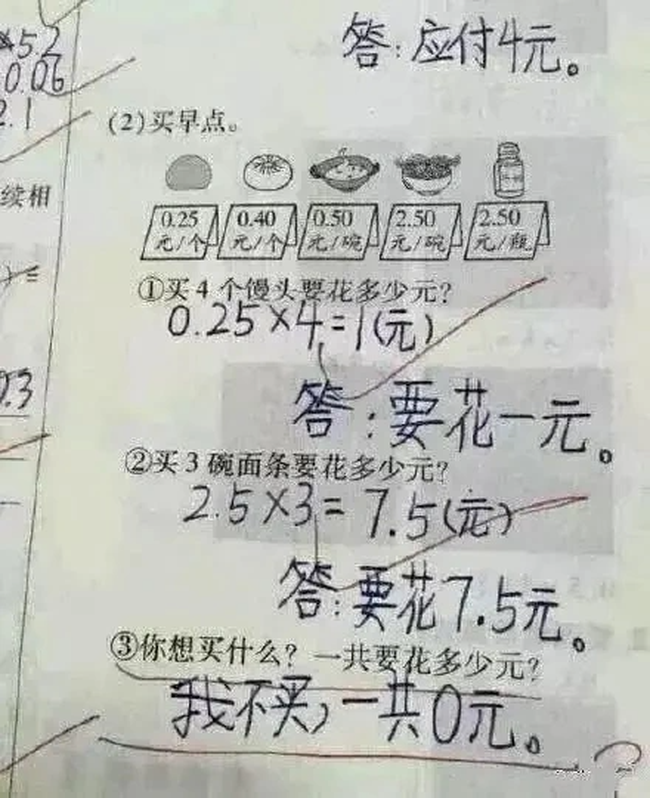 ×52
0.06
2.1
答:应付4元。
(2)买早点。
续相
0.25 0.40 0.50 2.50 2.50
元/个 元/个 元/碗 元/碗 元/瓶
①买4个馒头要花多少元?
0.25×4=1(元)
0.3
答:要花一元。
②买3碗面条要花多少元?
2.5×3=7.5(元)
答:要花7.5元。
③你想买什么?一共要花多少元?
我不买,一共0元。
?